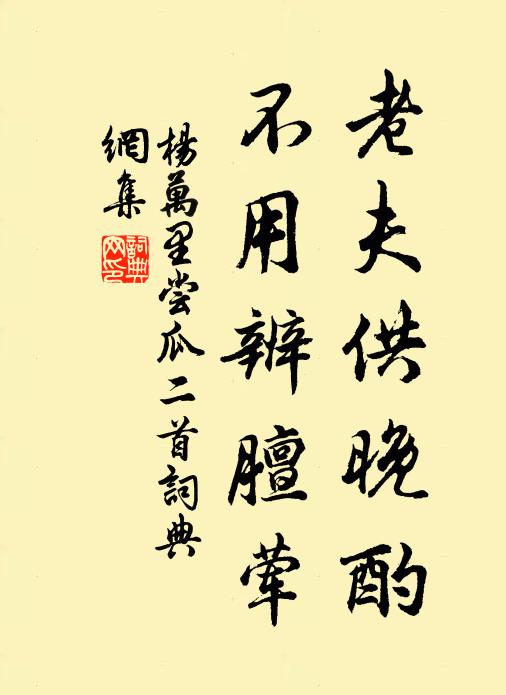 老夫供晚酌
不用辦膻葷
楊萬里尝瓜二首詞典
網集
詞典
网印